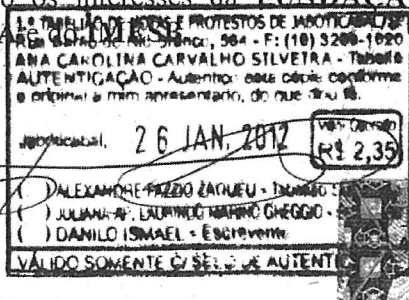 o os interesses da FUNDAÇÃ
1.º TABELIÃO DE NOTAS E PROTESTOS DE JABOTICABAL/SP
Rio Branco, 364 - F: (16) 3209-1020
ANA CAROLINA CARVALHO SILVEIRA - Tabeliã
AUTENTICAÇÃO - Autentico esta cópia conforme
o original a mim apresentado, do que dou fé.
Jaboticabal, 26 JAN. 2012
R$ 2,35
( ) ALEXANDRE FAZZIO
( ) JULIANA AP. MARINO GHEGGIO -
( ) DANILO ISMAEL - Escrevente
VÁLIDO SOMENTE C/ SELO DE AUTENTI